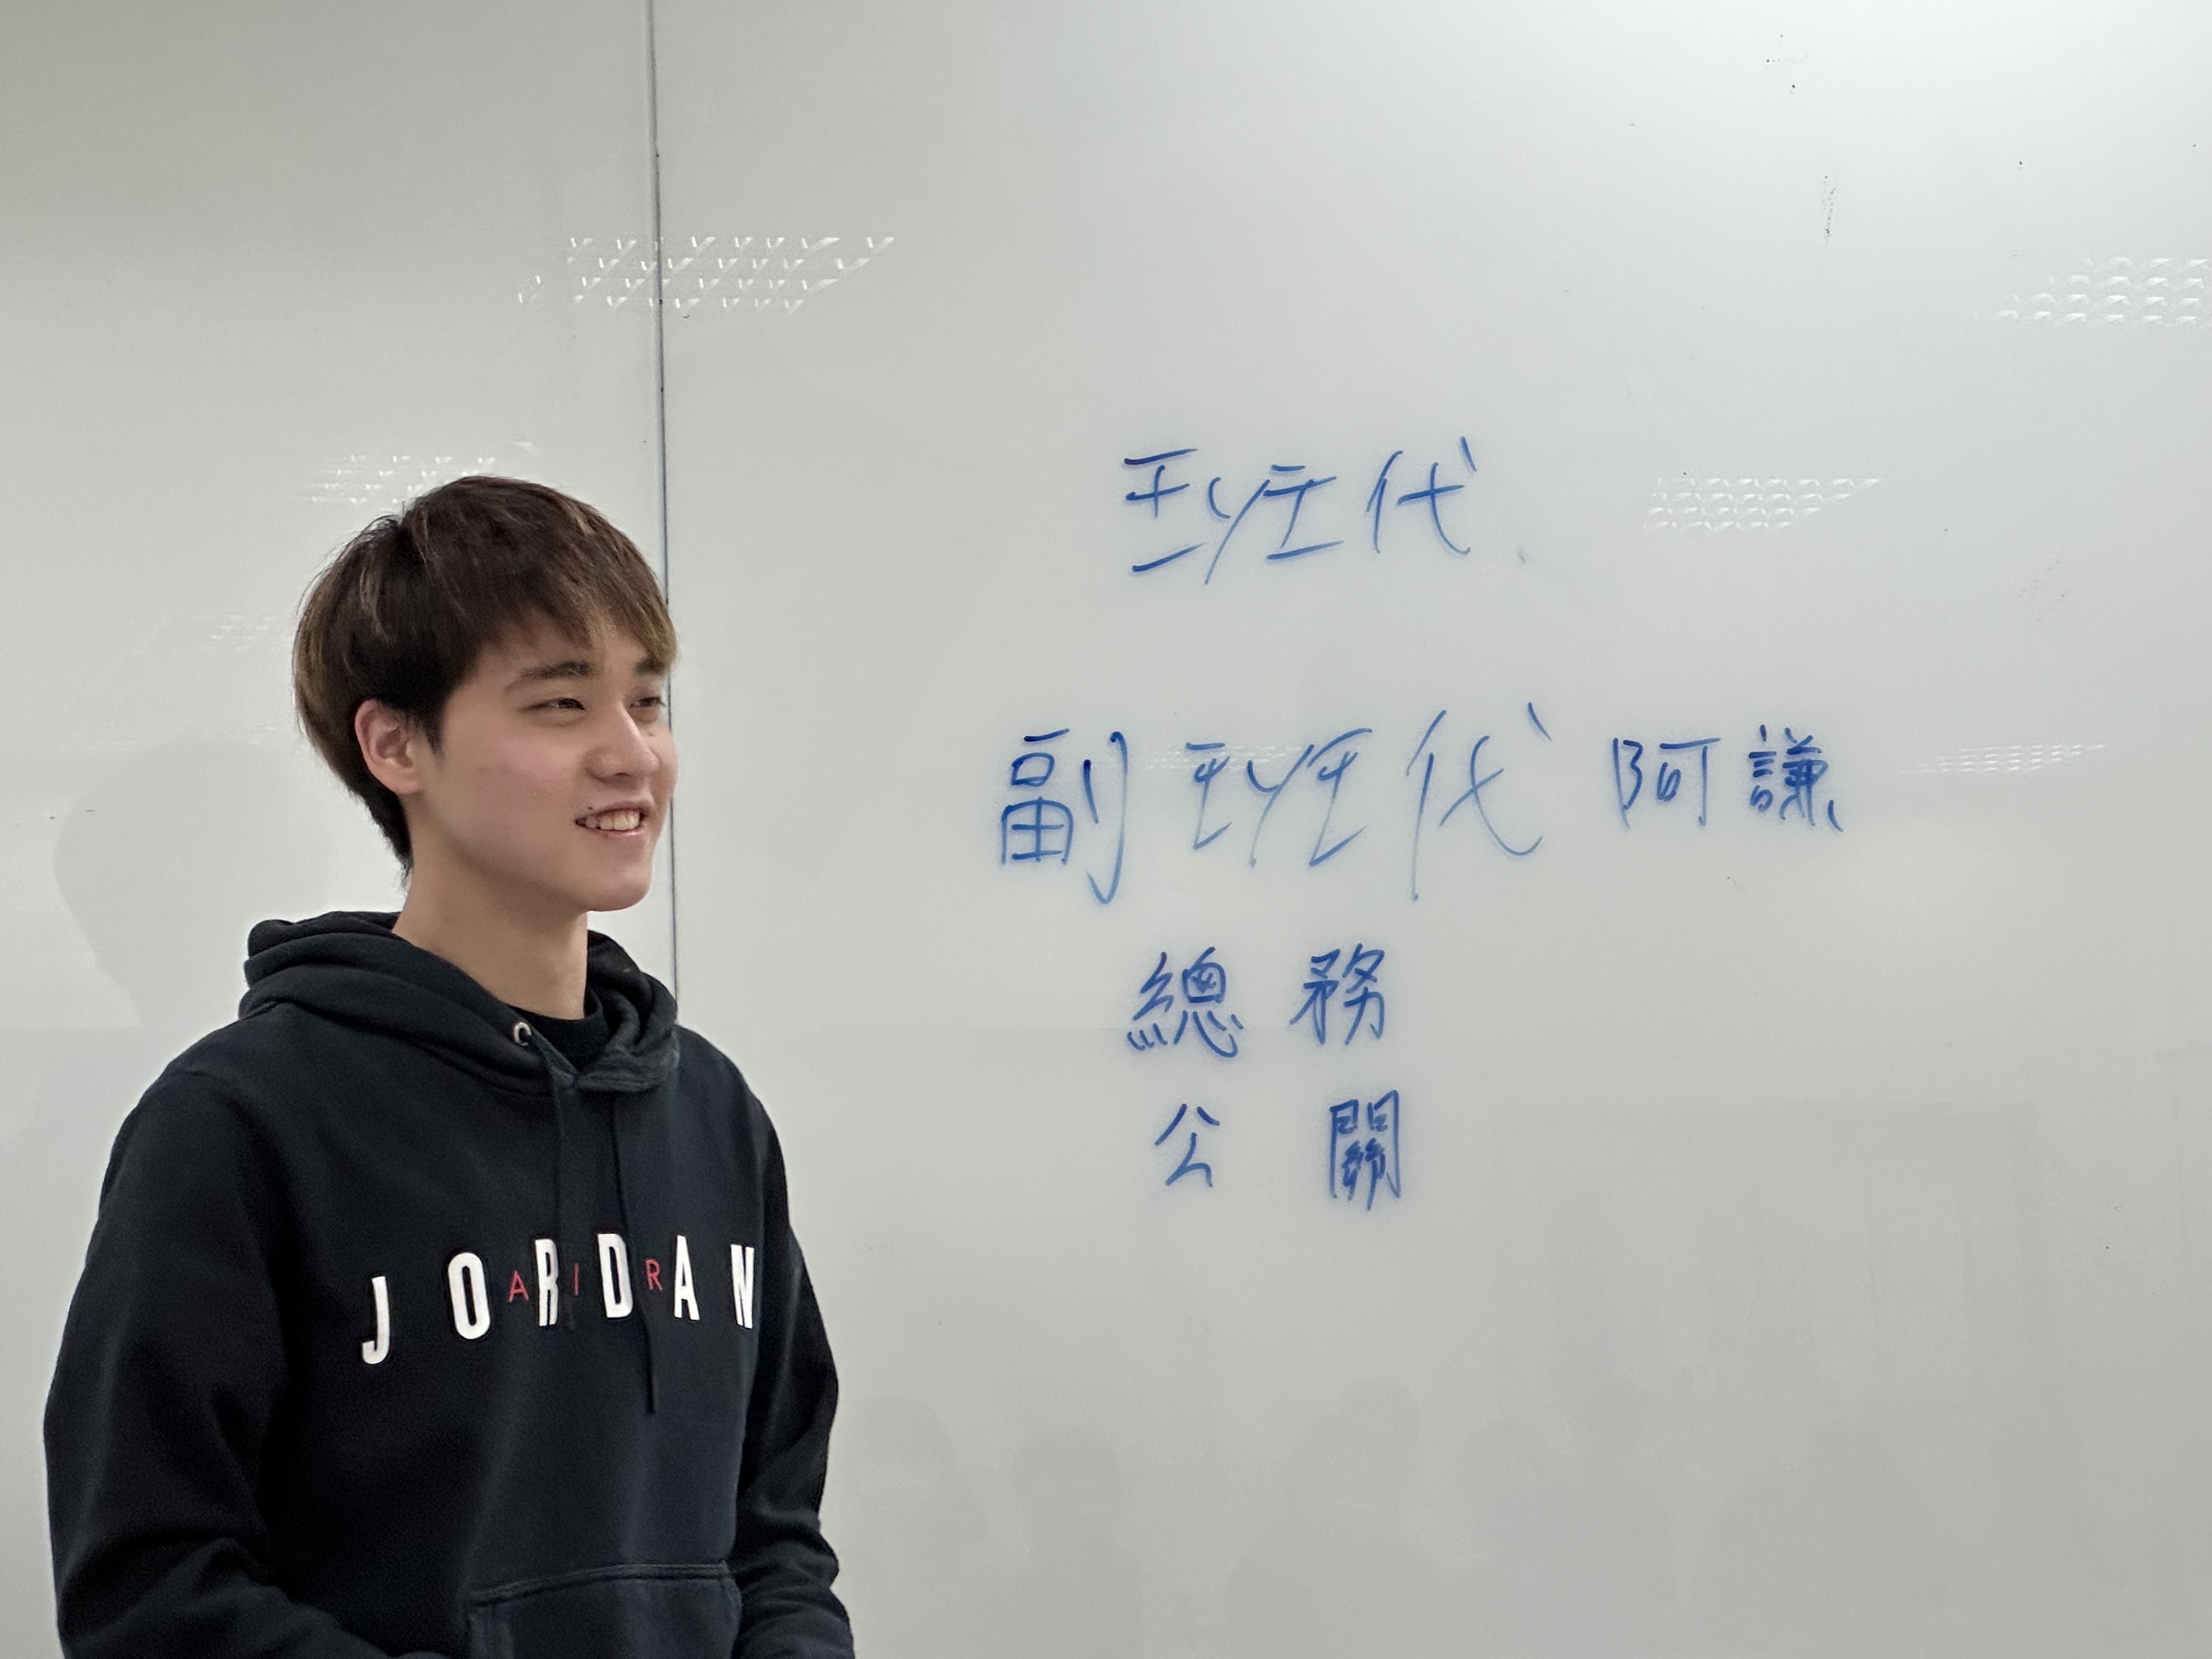 班代
副班代 阿謙
總務
公關
JORDAN
AIR